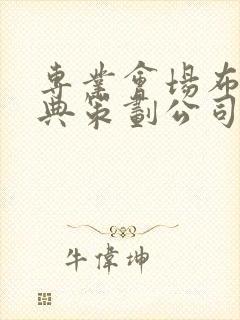 專業會場布
典策劃公司
牛偉坤